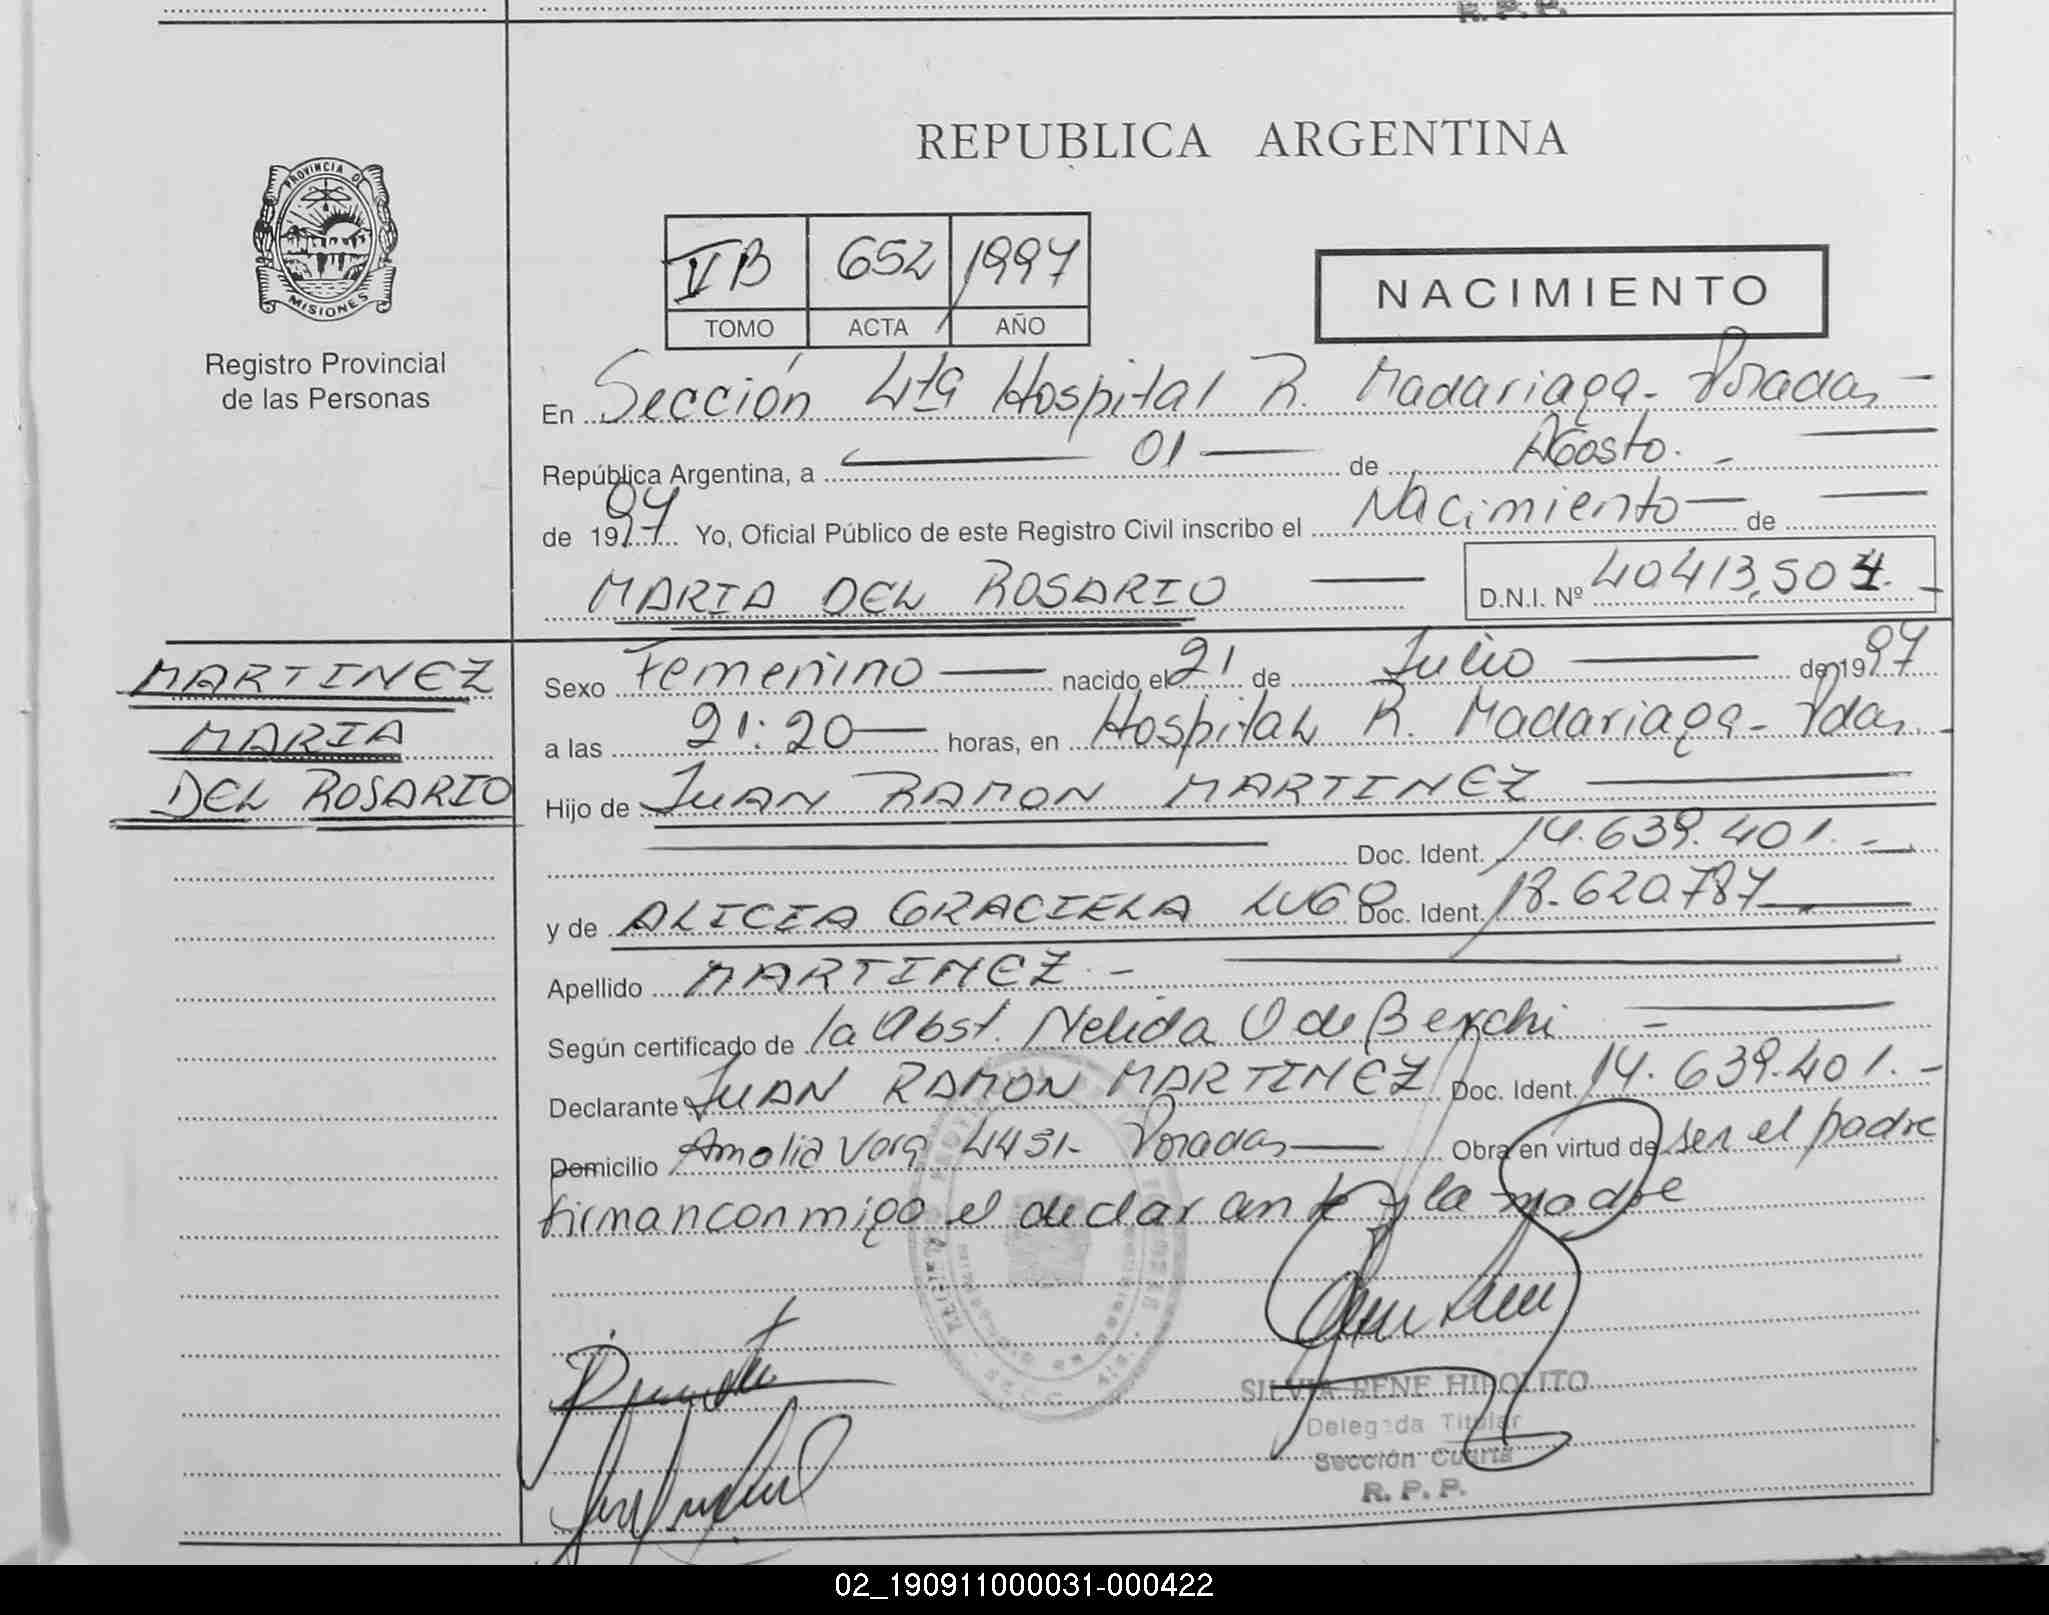 R. P. P.
REPUBLICA ARGENTINA
PROVINCIA DE
MISIONES
Registro Provincial
de las Personas
VB 652 1997
TOMO ACTA AÑO
NACIMIENTO
En Sección 4ta Hospital R. Madariaga - Posadas -
República Argentina, a 01 de Agosto. -
de 1997 Yo, Oficial Público de este Registro Civil inscribo el Nacimiento de
MARIA DEL ROSARIO D.N.I. Nº 40413,504. -
MARTINEZ
MARIA
DEL ROSARIO
Sexo Femenino nacido el 21 de Julio de 1997
a las 21:20 horas, en Hospital R. Madariaga - Pdas. -
Hijo de JUAN RAMON MARTINEZ
Doc. Ident. 14.639.401. -
y de ALICIA GRACIELA LUGO Doc. Ident. 18.620.787
Apellido MARTINEZ. -
Según certificado de la Obst. Nelida O de
Declarante JUAN RAMON MARTINEZ Doc. Ident. 14.639.401. -
Domicilio 4431 - Posadas Obra en virtud de ser el padre
firman conmigo el declarante y la madre
SILVIA RENE HIPOLITO
Delegada Titular
Sección Cuarta
R. P. P.
02_190911000031-000422